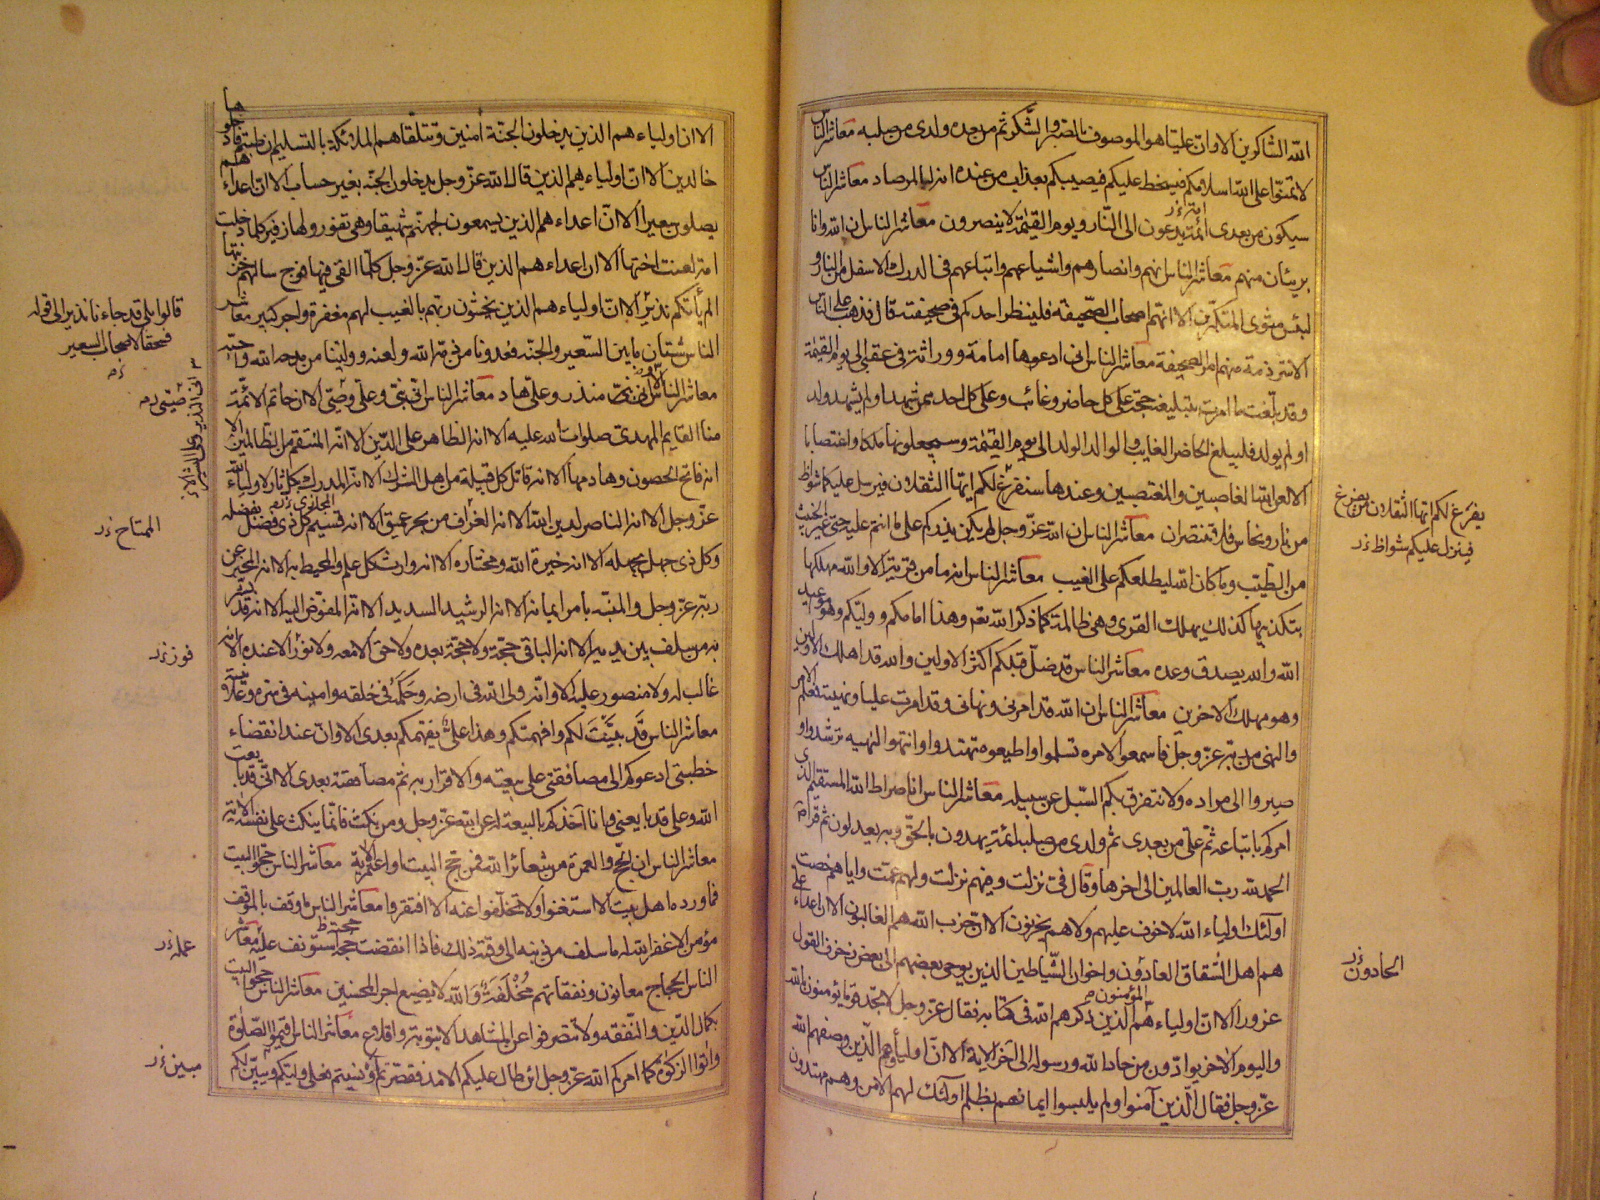 الله الشاكرين الا وان عليا هو الموصوف بالصبر والشكر ثم من بعده ولدى من صلبه معاشر الناس
لا تمنوا على الله اسلامكم فيسخط عليكم فيصيبكم بعذاب من عنده انه لبالمرصاد معاشر الناس
سيكون من بعدى ائمة يدعون الى النار ويوم القيمة لا ينصرون معاشر الناس ان الله وانا
بريئان منهم معاشر الناس انهم وانصارهم واشياعهم واتباعهم فى الدرك الاسفل من النار و
لبئس مثوى المتكبرين الا انهم اصحاب الصحيفة فلينظر احدكم فى صحيفته قال فذهب على الناس
الا شرذمة منهم امر الصحيفة معاشر الناس انى ادعوها امامة ووراثة فى عقبى الى يوم القيمة
وقد بلغت ما امرت بتبليغه حجة على كل حاضر وغائب وعلى كل احد ممن شهد او لم يشهد ولد
او لم يولد فليبلغ الحاضر الغايب والوالد الولد الى يوم القيمة وسيجعلونها ملكا واغتصابا
الا لعن الله الغاصبين والمغتصبين وعندها سنفرغ لكم ايها الثقلان فيرسل عليكما شواظ
من نار ونحاس فلا تنتصران معاشر الناس ان الله عز وجل لم يكن يذركم على ما انتم عليه حتى يميز الخبيث
من الطيب وما كان الله ليطلعكم على الغيب معاشر الناس انه ما من قرية الا والله مهلكها
بتكذيبها كذلك يهلك القرى وهى ظالمة كما ذكر الله تعم وهذا امامكم ووليكم وهو مواعيد
الله والله يصدق وعده معاشر الناس قد ضل قبلكم اكثر الاولين والله قد اهلك الاولين
وهو مهلك الاخرين معاشر الناس ان الله قد امرنى ونهانى وقد امرت عليا ونهيته فعلم الامر
والنهى من ربه عز وجل فاسمعوا لامره تسلموا واطيعوه تهتدوا وانتهوا لنهيه ترشدوا و
صيروا الى مراده ولا تتفرق بكم السبل عن سبيله معاشر الناس انا صراط الله المستقيم الذى
امركم باتباعه ثم على من بعدى ثم ولدى من صلبه ائمة يهدون بالحق وبه يعدلون ثم قرأ
الحمد لله رب العالمين الى اخرها وقال فى نزلت وفيهم نزلت ولهم عمت واياهم خصت
اولئك اولياء الله لا خوف عليهم ولا هم يحزنون الا ان حزب الله هم الغالبون الا ان اعداء على
هم اهل الشقاق العادون واخوان الشياطين الذين يوحى بعضهم الى بعض زخرف القول
غرورا الا ان اولياءهم الذين ذكرهم الله فى كتابه فقال عز وجل لا تجد قوما يؤمنون بالله
المؤمنون
واليوم الاخر يوادون من حاد الله ورسوله الى آخر الاية الا ان اولياؤهم الذين وصفهم الله
عز وجل فقال الذين آمنوا ولم يلبسوا ايمانهم بظلم اولئك لهم الامن وهم مهتدون
يفرغ لكم ايها الثقلان من يفرغ
فينزل عليكم شواظ
الحادون
الا ان اولياءهم الذين يدخلون الجنة آمنين وتتلقاهم الملائكة بالتسليم ان طبتم فادخلوها
خالدين الا ان اولياءهم الذين قال الله عز وجل يدخلون الجنة بغير حساب الا ان اعداءهم
يصلون سعيرا الا ان اعداءهم الذين يسمعون لجهنم شهيقا وهى تفور ولها زفير كلما دخلت
امة لعنت اختها الا ان اعداءهم الذين قال الله عز وجل كلما القى فيها فوج سالهم خزنتها
الم يأتكم نذير الا ان اولياءهم الذين يخشون ربهم بالغيب لهم مغفرة واجر كبير معاشر
الناس شتان ما بين السعير والجنة فعدونا من ذمه الله ولعنه وولينا من مدحه الله واحبه
معاشر الناس الا وانى منذر وعلى هاد معاشر الناس انى نبى وعلى وصيى الا ان خاتم الائمة
منا القايم المهدى صلوات الله عليه الا انه الظاهر على الدين الا انه المنتقم من الظالمين الا
انه فاتح الحصون وهادمها الا انه قاتل كل قبيلة من اهل الشرك الا انه المدرك بكل ثار لاولياء الله
عز وجل الا انه الناصر لدين الله الا انه الغراف من بحر عميق الا انه قسيم كل ذى فضل بفضله
وكل ذى جهل بجهله الا انه خيرة الله ومختاره الا انه وارث كل علم والمحيط به الا انه المخبر عن
ربه عز وجل والمنبه بامر ايمانه الا انه الرشيد السديد الا انه المفوض اليه الا انه قد بشر
به من سلف بين يديه الا انه الباقى حجة ولا حجة بعده ولا حق الا معه ولا نور الا عنده الا انه
غالب له ولا منصور عليه الا وانه ولى الله فى ارضه وحكمه فى خلقه وامينه فى سره وعلانيته
معاشر الناس قد بينت لكم وافهمتكم وهذا على يفهمكم بعدى الا وان عند انقضاء
خطبتى ادعوكم الى مصافقتى على بيعته والاقرار به ثم مصافقته بعدى الا انى قد بايعت
الله وعلى قد بايعنى وانا آخذكم بالبيعة له عن الله عز وجل ومن نكث فانما ينكث على نفسه الاية
معاشر الناس ان الحج والعمرة من شعائر الله فمن حج البيت او اعتمر الاية معاشر الناس حجوا البيت
فما ورده اهل بيت الا استغنوا ولا تخلفوا عنه الا افتقروا معاشر الناس ما وقف بالموقف
مؤمن الا غفر الله له ما سلف من ذنبه الى وقته ذلك فاذا انقضت حجته استونف عليه معاشر
الناس الحجاج معانون ونفقاتهم مخلفة والله لا يضيع اجر المحسنين معاشر الناس حجوا البيت
بكمال الدين والتفقه ولا تنصرفوا عن المشاهد الا بتوبة واقلاع معاشر الناس اقيموا الصلوة
واتوا الزكوة كما امركم الله عز وجل لئن طال عليكم الامد فقصرتم او نسيتم فعلى وليكم ويبين لكم
قالوا بلى قد جاءنا نذير الى قوله
فسحقا لاصحاب السعير
الممتاح
فوز
عمله
مبين